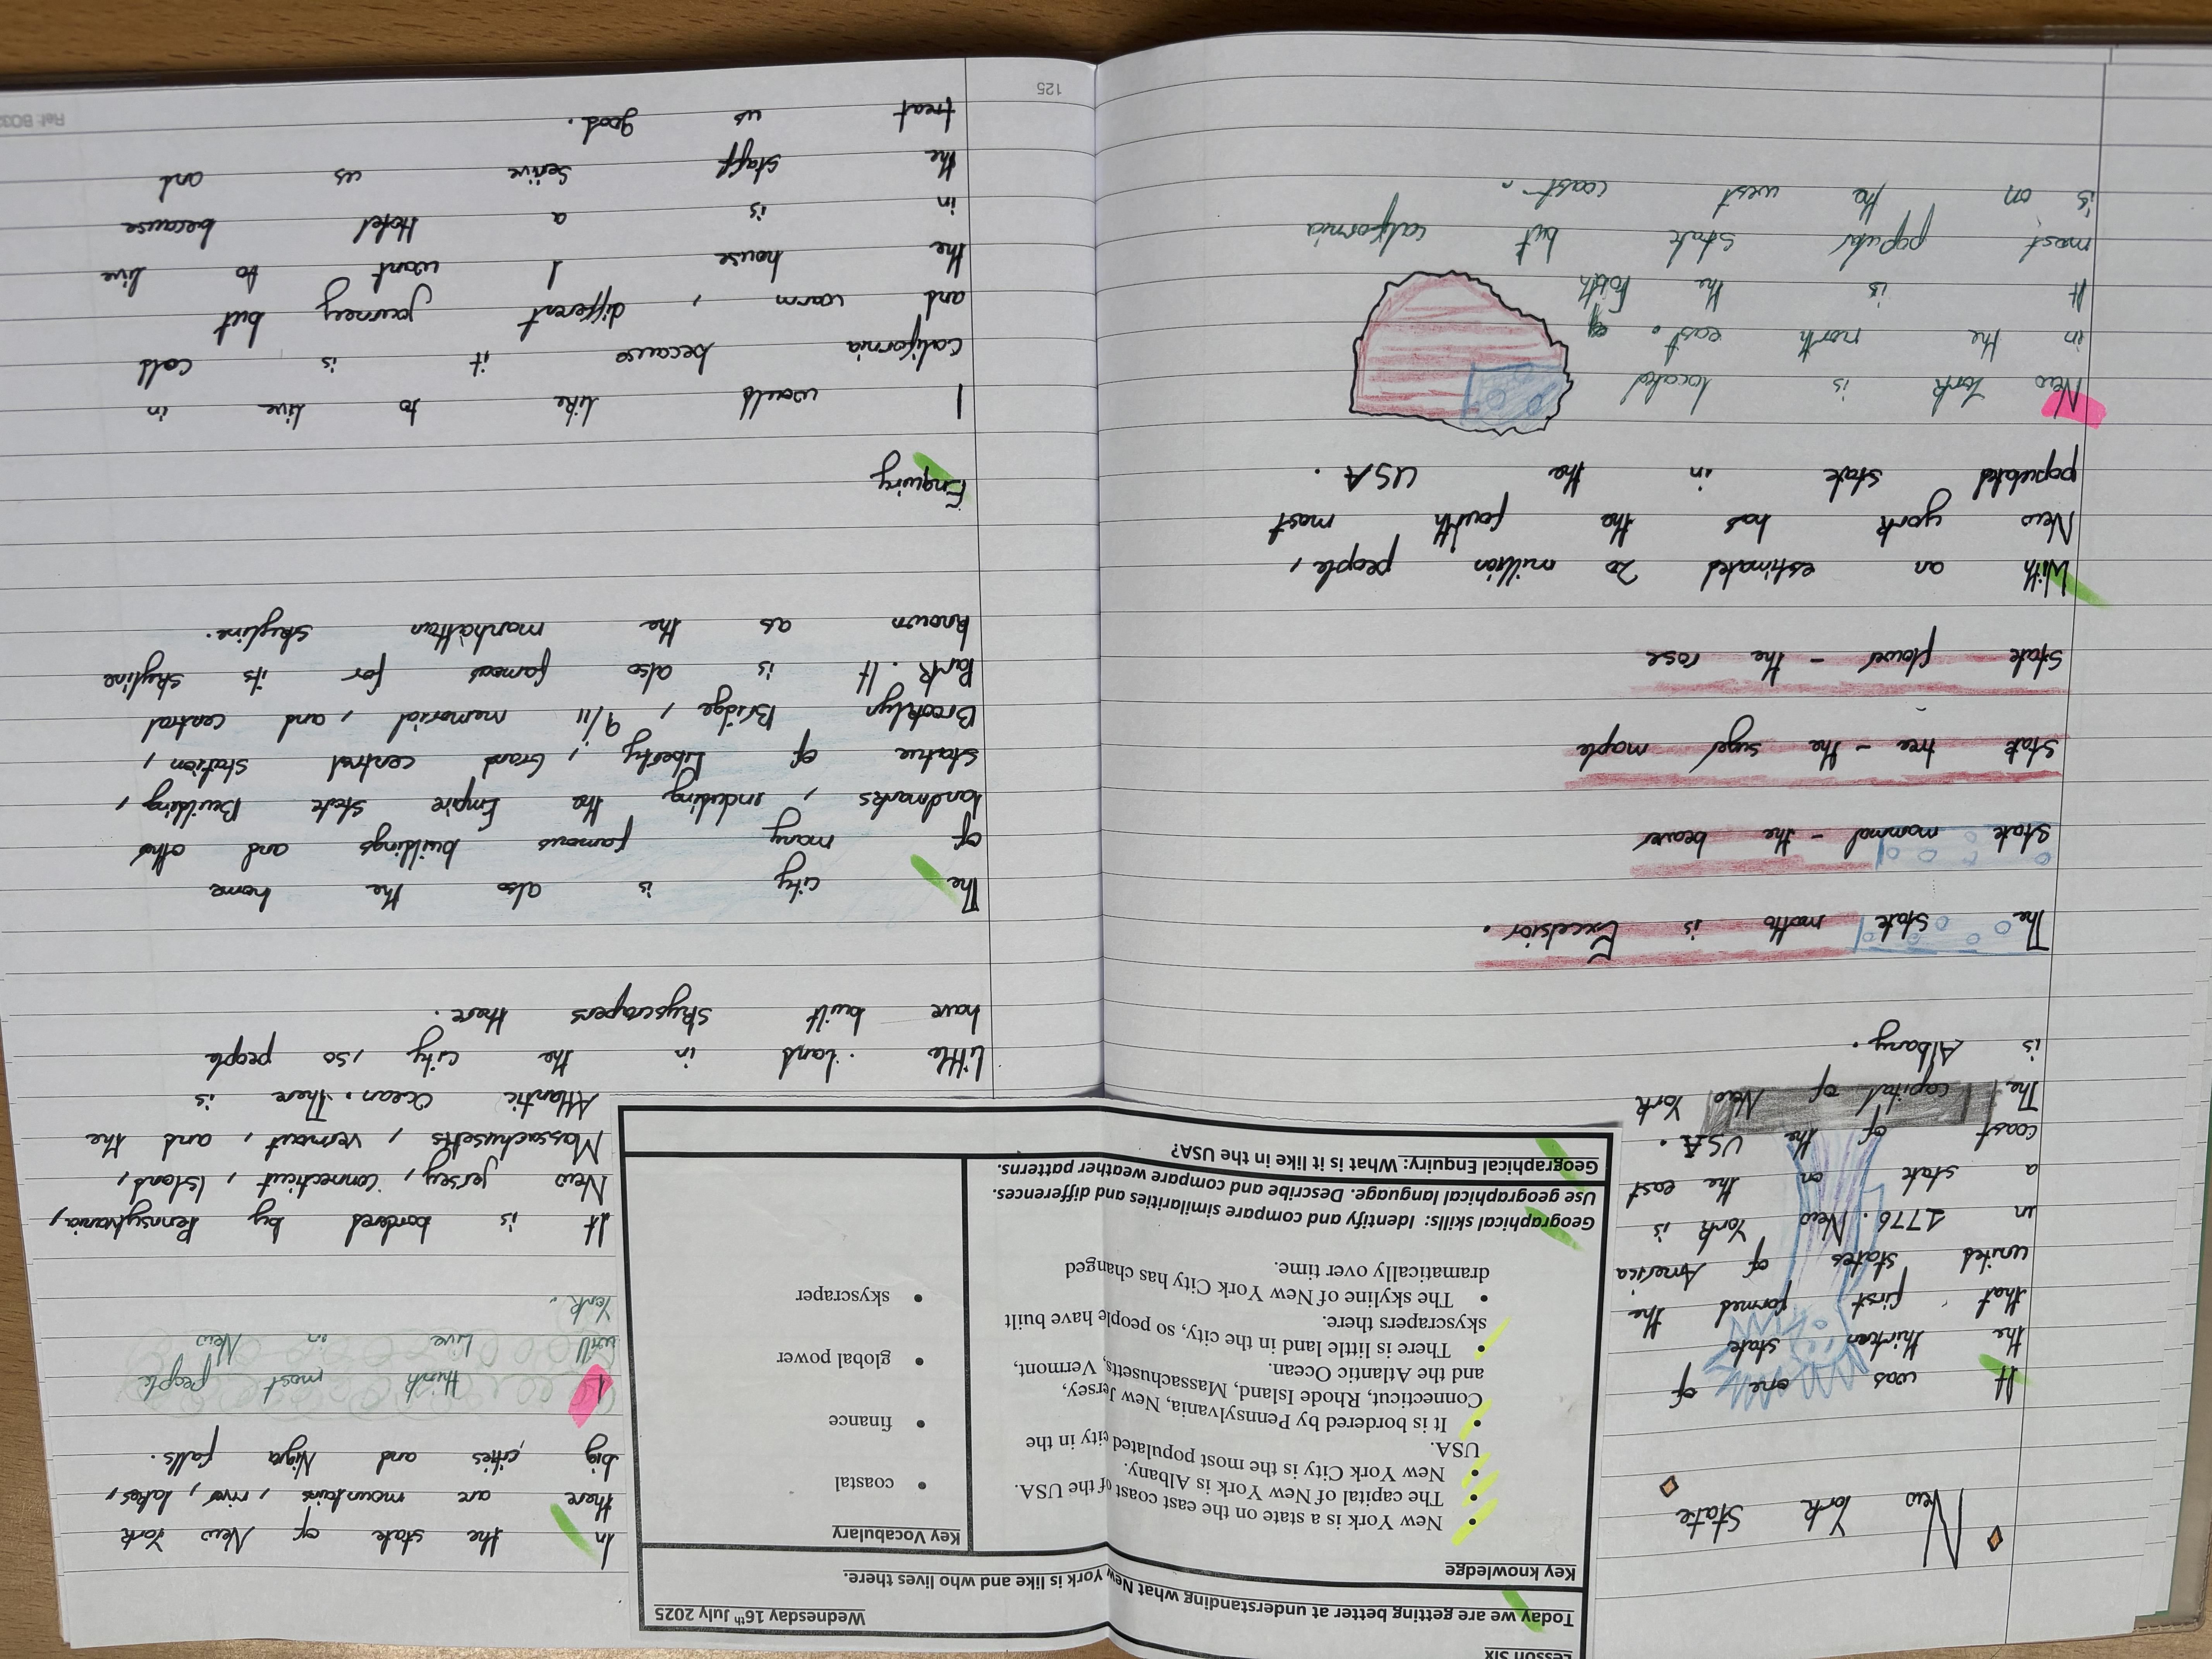 Lesson Six
Today we are getting better at understanding what New York is like and who lives there.
Wednesday 16th July 2025
Key knowledge
• New York is a state on the east coast of the USA.
• The capital of New York is Albany.
• New York City is the most populated city in the
USA.
• It is bordered by Pennsylvania, New Jersey,
Connecticut, Rhode Island, Massachusetts, Vermont,
and the Atlantic Ocean.
• There is little land in the city, so people have built
skyscrapers there.
• The skyline of New York City has changed
dramatically over time.
Key Vocabulary
• coastal
• finance
• global power
• skyscraper
Geographical skills: Identify and compare similarities and differences.
Use geographical language. Describe and compare weather patterns.
Geographical Enquiry: What is it like in the USA?
New York State
It was one of
the thirteen state
that first formed the
united states of America
in 1776. New York is
a state on the east
coast of the USA.
The capital of New York
is Albany.
The State motto is Excelsior.
State mammal - the beaver
State tree - the suger maple
State flower - the rose
With an estimated 20 million people,
New york has the fourth most
populated state in the USA.
New York is located
in the north east.
It is the
most populer state but california
is on the west coast.
In the state of New York
there are mountains, river, lakes,
big cities and Nigra falls.
I think most people
will live in New
York.
It is bordered by Pennsylvania,
New jersey, connecticut, Island,
Massachusetts, vermont, and the
Atlantic Ocean. There is
little land in the city, so people
have built skyscrapers there.
The city is also the home
of many famous buildings and other
landmarks, including the Empire state Building,
statue of Liberty, Grand central station,
Brooklyn Bridge, 9/11 memorial, and central
Park. It is also famous for its skyline
known as the manhattan skyline.
Enquiry
I would like to live in
california because it is cold
and warm, different journey but
the house I want to live
in is a Hotel because
the staff serive us and
treat us good.
125